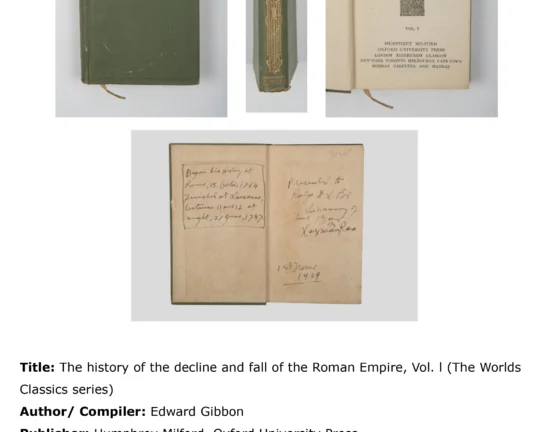 VOL. I
HUMPHREY MILFORD
OXFORD UNIVERSITY PRESS
LONDON EDINBURGH GLASGOW
NEW YORK TORONTO MELBOURNE CAPE TOWN
BOMBAY CALCUTTA AND MADRAS
Began his history at
Rome, 15, Octbr, 1764
Finished at Lausanne,
between 11 and 12 at
night, 27 June, 1787
Presented to
1st
Title: The history of the decline and fall of the Roman Empire, Vol. l (The Worlds
Classics series)
Author/ Compiler: Edward Gibbon
Publisher: Humphrey Milford, Oxford University Press